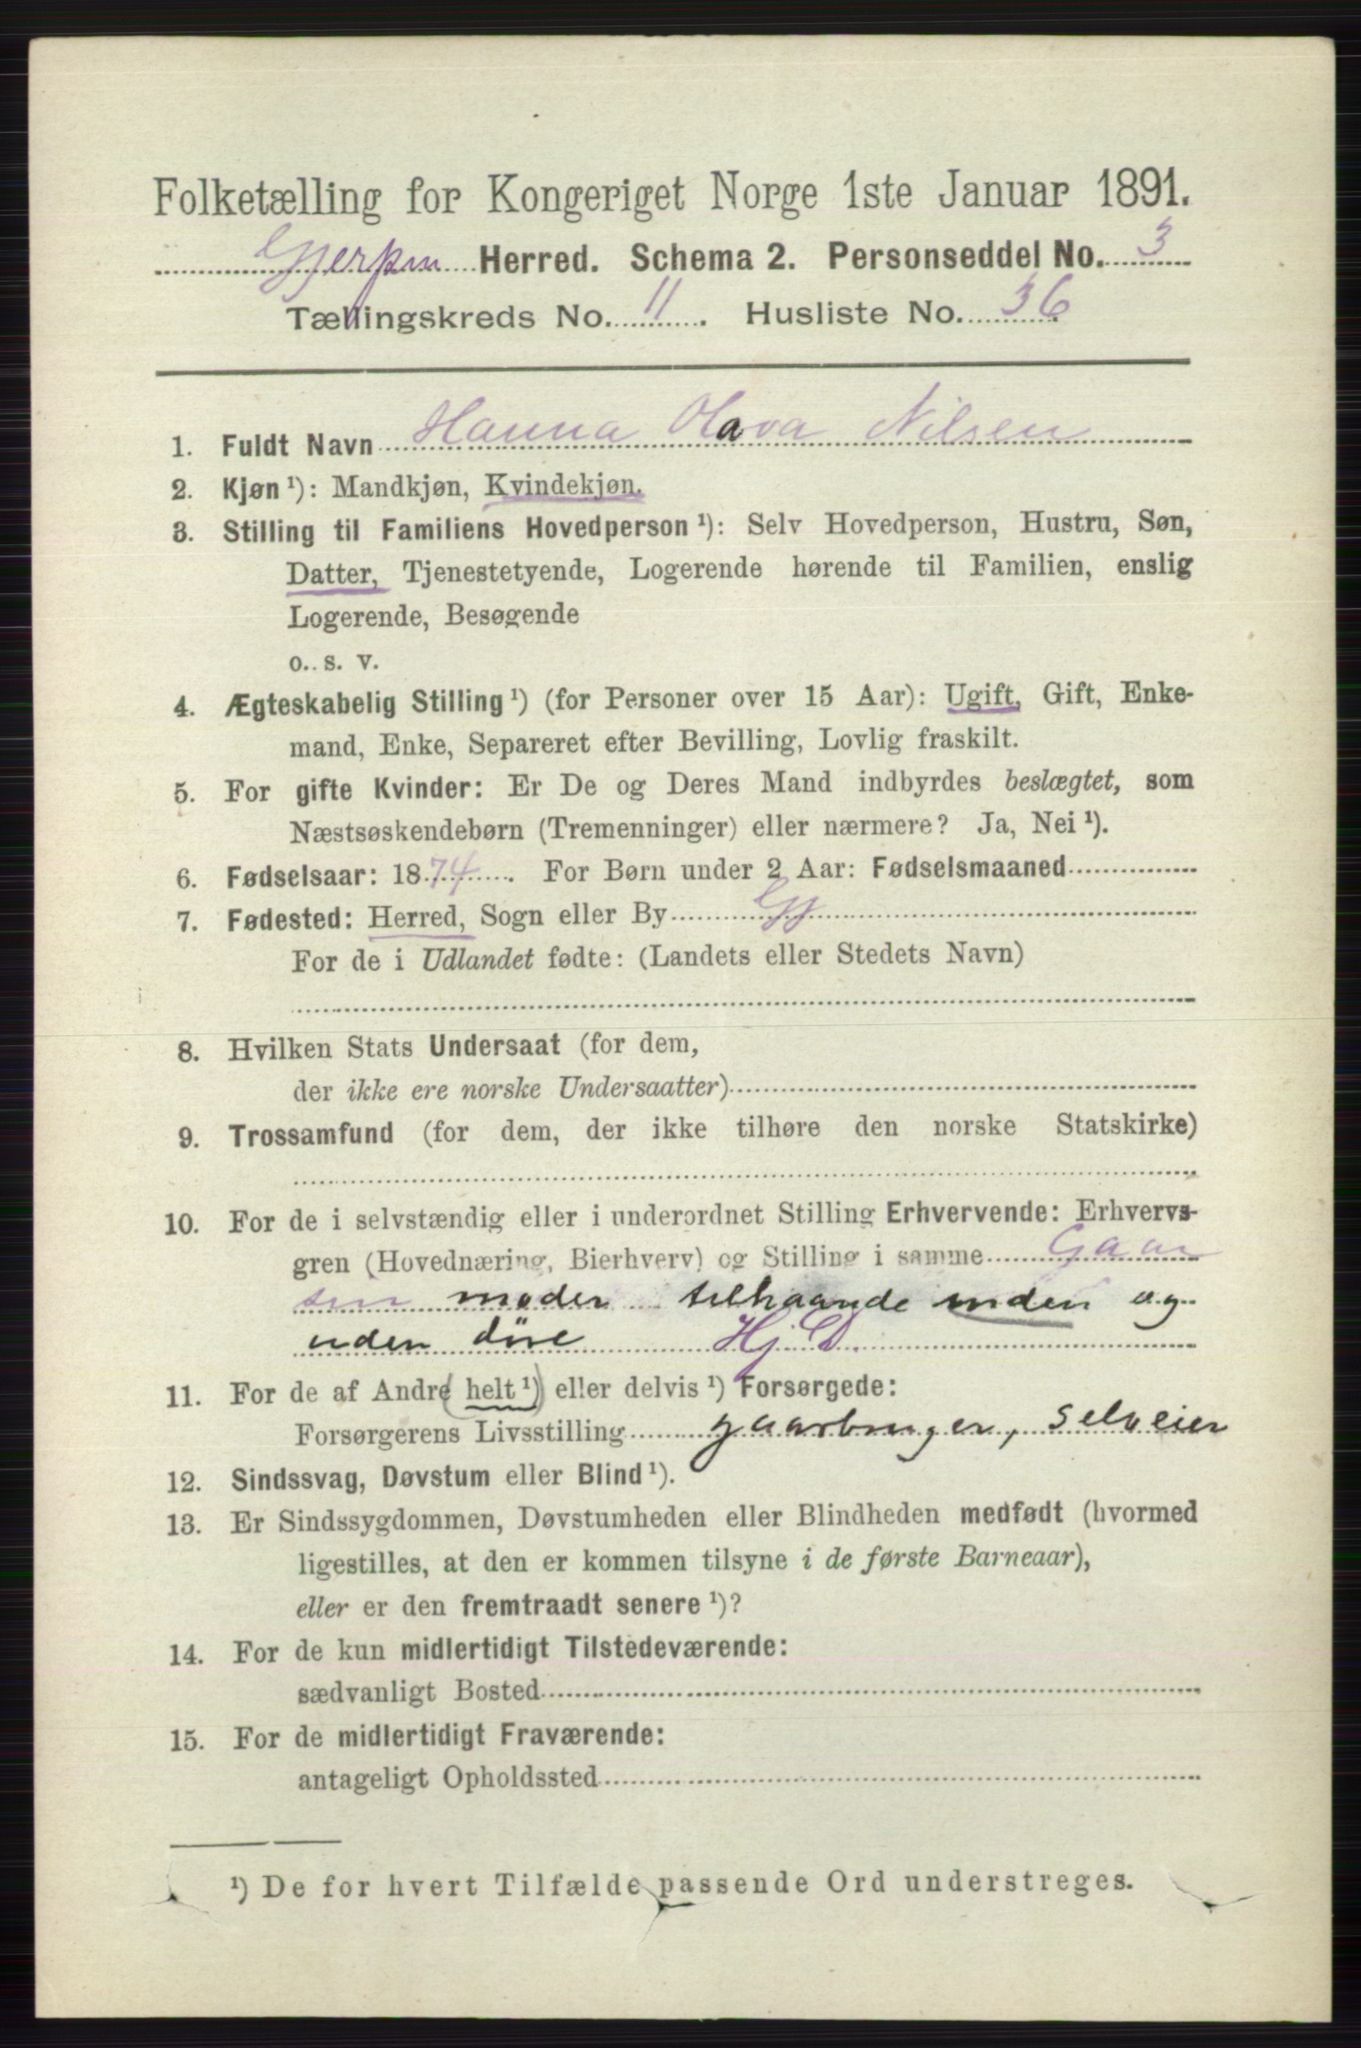 Folketælling for Kongeriget Norge 1ste Januar 1891.
Gjerpen Herred. Schema 2. Personseddel No. 3
Tællingskreds No. 11. Husliste No. 36
1. Fuldt Navn Hanna Olava Nilsen
2. Kjøn ¹): Mandkjøn, Kvindekjøn.
3. Stilling til Familiens Hovedperson ¹): Selv Hovedperson, Hustru, Søn,
Datter, Tjenestetyende, Logerende hørende til Familien, enslig
Logerende, Besøgende
o. s. v.
4. Ægteskabelig Stilling ¹) (for Personer over 15 Aar): Ugift, Gift, Enke-
mand, Enke, Separeret efter Bevilling, Lovlig fraskilt.
5. For gifte Kvinder: Er De og Deres Mand indbyrdes beslægtet, som
Næstsøskendebørn (Tremenninger) eller nærmere? Ja, Nei ¹).
6. Fødselsaar: 1874. For Børn under 2 Aar: Fødselsmaaned
7. Fødested: Herred, Sogn eller By Gj
For de i Udlandet fødte: (Landets eller Stedets Navn)
8. Hvilken Stats Undersaat (for dem,
der ikke ere norske Undersaatter)
9. Trossamfund (for dem, der ikke tilhøre den norske Statskirke)
10. For de i selvstændig eller i underordnet Stilling Erhvervende: Erhvervs-
gren (Hovednæring, Bierhverv) og Stilling i samme Gaar
sin moder tilhaande inden og
uden døre Hj. D.
11. For de af Andre (helt ¹) eller delvis ¹) Forsørgede:
Forsørgerens Livsstilling gaarbruger, selveier
12. Sindssvag, Døvstum eller Blind ¹).
13. Er Sindssygdommen, Døvstumheden eller Blindheden medfødt (hvormed
ligestilles, at den er kommen tilsyne i de første Barneaar),
eller er den fremtraadt senere ¹)?
14. For de kun midlertidigt Tilstedeværende:
sædvanligt Bosted
15. For de midlertidigt Fraværende:
antageligt Opholdssted
¹) De for hvert Tilfælde passende Ord understreges.